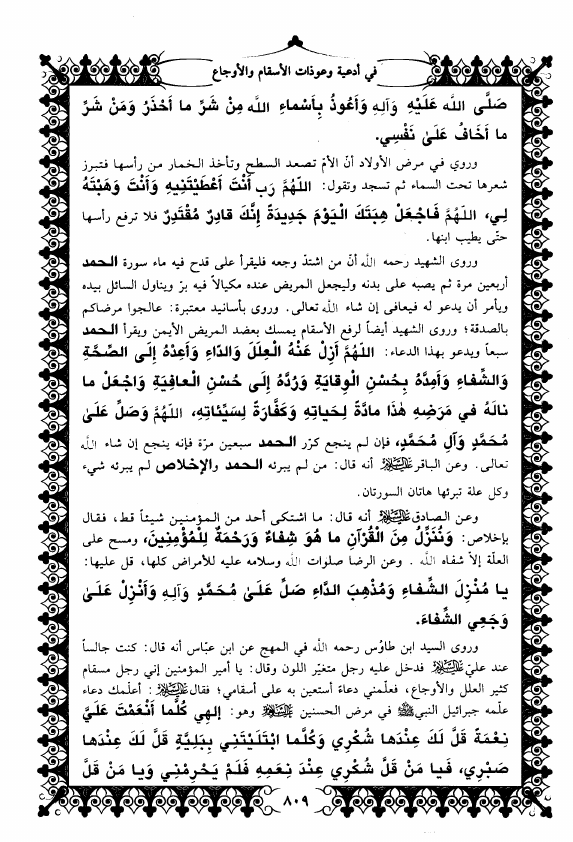 في أدعية وعوذات الأسقام والأوجاع
صَلَّى الله عَلَيْهِ وَآلِهِ وَأَعُوذُ بِأَسْماءِ الله مِنْ شَرِّ ما أَحْذَرُ وَمَنْ شَرِّ
ما أَخَافُ عَلَىٰ نَفْسِي.
وروي في مرض الأولاد أنّ الأمّ تصعد السطح وتأخذ الخمار من رأسها فتبرز
شعرها تحت السماء ثم تسجد وتقول: اللهُمَّ رَبِ أَنْتَ أَعْطَيْتَنِيهِ وَأَنْتَ وَهَبْتَهُ
لِي، اللهُمَّ فَاجْعَلْ هِبَتَكَ الْيَوْمَ جَدِيدَةً إِنَّكَ قادِرٌ مُقْتَدِرٌ فلا ترفع رأسها
حتّى يطيب ابنها.
وروى الشهيد رحمه الله أنّ من اشتدّ وجعه فليقرأ على قدح فيه ماء سورة الحمد
أربعين مرة ثم يصبه على بدنه وليجعل المريض عنده مكيالاً فيه برّ ويناول السائل بيده
ويأمر أن يدعو له فيعافى إن شاء الله تعالى. وروي بأسانيد معتبرة: عالجوا مرضاكم
بالصدقة؛ وروى الشهيد أيضاً لرفع الأسقام يمسك بعضد المريض الأيمن ويقرأ الحمد
سبعاً ويدعو بهذا الدعاء: اللهُمَّ أَزِلْ عَنْهُ الْعِلَلَ وَالدَّاءَ وَأَعِدْهُ إِلَى الصِّحَّةِ
وَالشِّفاءِ وَأَمِدَّهُ بِحُسْنِ الْوِقايَةِ وَرُدَّهُ إِلَى حُسْنِ الْعافِيَةِ وَاجْعَلْ ما
نالَهُ في مَرَضِهِ هٰذا مادَّةً لِحَياتِهِ وَكَفَّارَةً لِسَيِّئاتِهِ، اللهُمَّ وَصَلِّ عَلَىٰ
مُحَمَّدٍ وَآلِ مُحَمَّدٍ، فإن لم ينجع كرّر الحمد سبعين مرّة فإنه ينجع إن شاء الله
تعالى. وعن الباقر عليه السلام أنه قال: من لم يبرئه الحمد والإخلاص لم يبرئه شيء
وكل علة تبرئها هاتان السورتان.
وعن الصادق عليه السلام أنه قال: ما اشتكى أحد من المؤمنين شيئاً قط، فقال
بإخلاص: وَنُنَزِّلُ مِنَ الْقُرْآنِ ما هُوَ شِفاءٌ وَرَحْمَةٌ لِلْمُؤْمِنِينَ، ومسح على
العلّة إلاّ شفاه الله . وعن الرضا صلوات الله وسلامه عليه للأمراض كلها، قل عليها:
يا مُنْزِلَ الشِّفاءِ وَمُذْهِبَ الدَّاءِ صَلِّ عَلَىٰ مُحَمَّدٍ وَآلِهِ وَأَنْزِلْ عَلَىٰ
وَجَعِي الشِّفاءَ.
وروى السيد ابن طاوُس رحمه الله في المهج عن ابن عبّاس أنه قال: كنت جالساً
عند عليّ عليه السلام فدخل عليه رجل متغيّر اللون وقال: يا أمير المؤمنين إني رجل مسقام
كثير العلل والأوجاع، فعلّمني دعاءً أستعين به على أسقامي؛ فقال عليه السلام: أعلّمك دعاء
علّمه جبرائيل النبيّ ﷺ في مرض الحسنين عليه السلام وهو: إِلهِي كُلَّما أَنْعَمْتَ عَلَيَّ
نِعْمَةً قَلَّ لَكَ عِنْدَها شُكْرِي وَكُلَّما ابْتَلَيْتَنِي بِبَلِيَّةٍ قَلَّ لَكَ عِنْدَها
صَبْرِي، فَيا مَنْ قَلَّ شُكْرِي عِنْدَ نِعَمِهِ فَلَمْ يَحْرِمْنِي وَيا مَنْ قَلَّ
٨٠٩